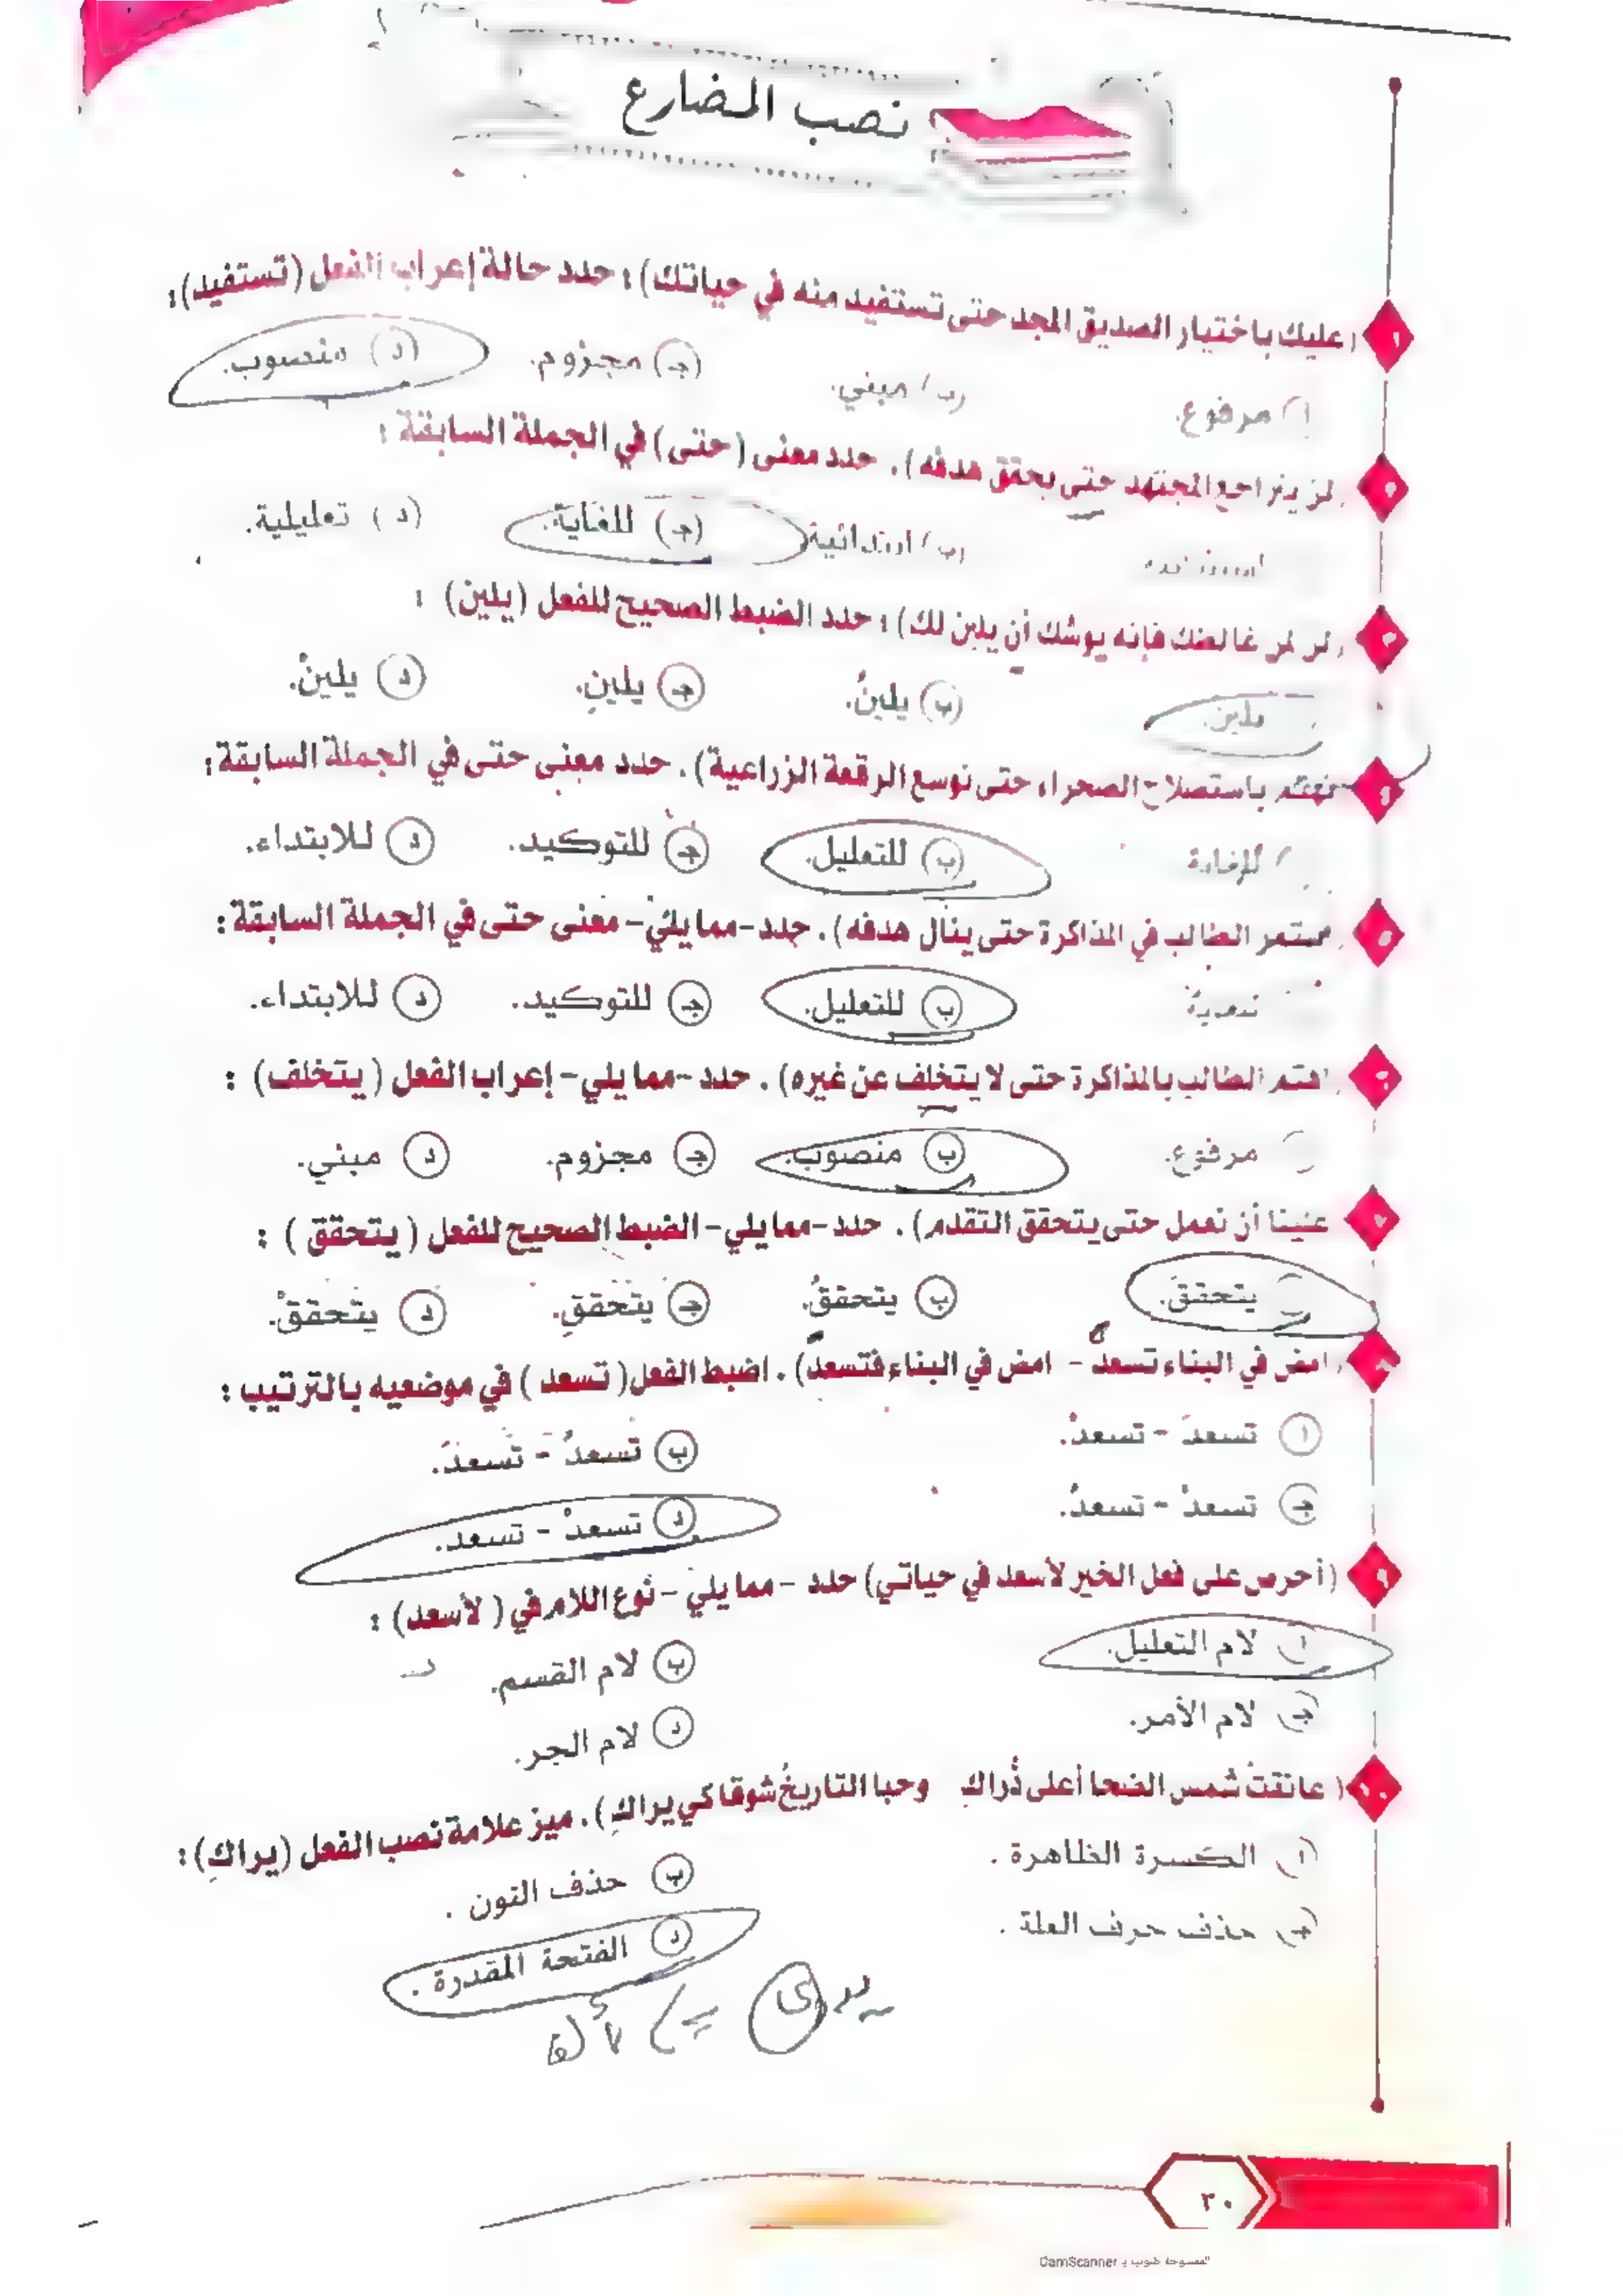 نصب المضارع
١ (عليك باختيار الصديق المجد حتى تستفيد منه في حياتك) : حدد حالة إعراب الفعل (تستفيد) :
أ) مرفوع. ب) مبني. (جـ) مجزوم. (د) منصوب.
لن يتراجع المجتهد حتى يحقق هدفه) . حدد معنى (حتى) في الجملة السابقة :
ب) ابتدائية (جـ) للغاية. (د) تعليلية.
فإنه يوشك أن يلين لك) : حدد الضبط الصحيح للفعل (يلين) :
يلين. (ب) يلينُ. (جـ) يلينِ. (د) يلينْ.
٤ نهتم باستصلاح الصحراء حتى نوسع الرقعة الزراعية) . حدد معنى حتى في الجملة السابقة :
(ب) للتعليل. (جـ) للتوكيد. (د) للابتداء.
٥ الطالب في المذاكرة حتى ينال هدفه) . حدد - مما يلي - معنى حتى في الجملة السابقة :
(ب) للتعليل. (جـ) للتوكيد. (د) للابتداء.
اهتم الطالب بالمذاكرة حتى لا يتخلف عن غيره) . حدد - مما يلي - إعراب الفعل (يتخلف) :
مرفوع. (ب) منصوب. (جـ) مجزوم. (د) مبني.
٧ علينا أن نعمل حتى يتحقق التقدم) . حدد - مما يلي - الضبط الصحيح للفعل (يتحقق) :
يتحققَ. (ب) يتحققُ. (جـ) يتحققِ. (د) يتحققْ.
٨ امض في البناء تسعد - امض في البناء فتسعد) . اضبط الفعل (تسعد) في موضعيه بالترتيب :
(أ) تسعدَ - تسعدْ. (ب) تسعدُ - تسعدَ.
(جـ) تسعدْ - تسعدُ. (د) تسعدْ - تسعد.
٩ (أحرص على فعل الخير لأسعد في حياتي) حدد - مما يلي - نوع اللام في (لأسعد) :
(أ) لام التعليل. (ب) لام القسم.
(جـ) لام الأمر. (د) لام الجر.
١٠ (عانقتْ شمس الضحا أعلى ذُراكِ وحبا التاريخُ شوقا كي يراكِ) . ميز علامة نصب الفعل (يراكِ) :
(أ) الكسرة الظاهرة . (ب) حذف النون .
(جـ) حذف حرف العلة . (د) الفتحة المقدرة .
يرى
٣٠
الممسوحة ضوئيا بـ CamScanner